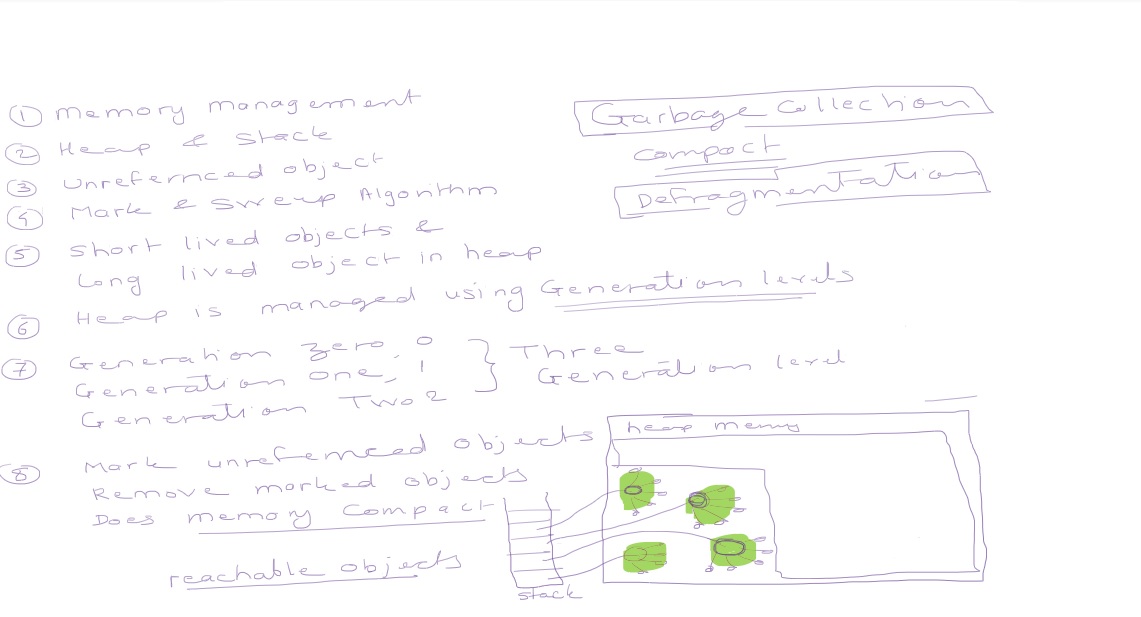 ① Memory management
② Heap & Stack
③ unrefernced object
④ Mark & sweep Algorithm
⑤ Short lived objects &
Long lived object in heap
⑥ Heap is managed using Generation levels
⑦ Generation zero, 0
Generation one, 1
Generation Two 2
Three
Generation level
⑧ Mark unrefernced objects
Remove marked objects
Does memory compact
reachable objects
Garbage Collection
compact
Defragmentation
heap memry
stack